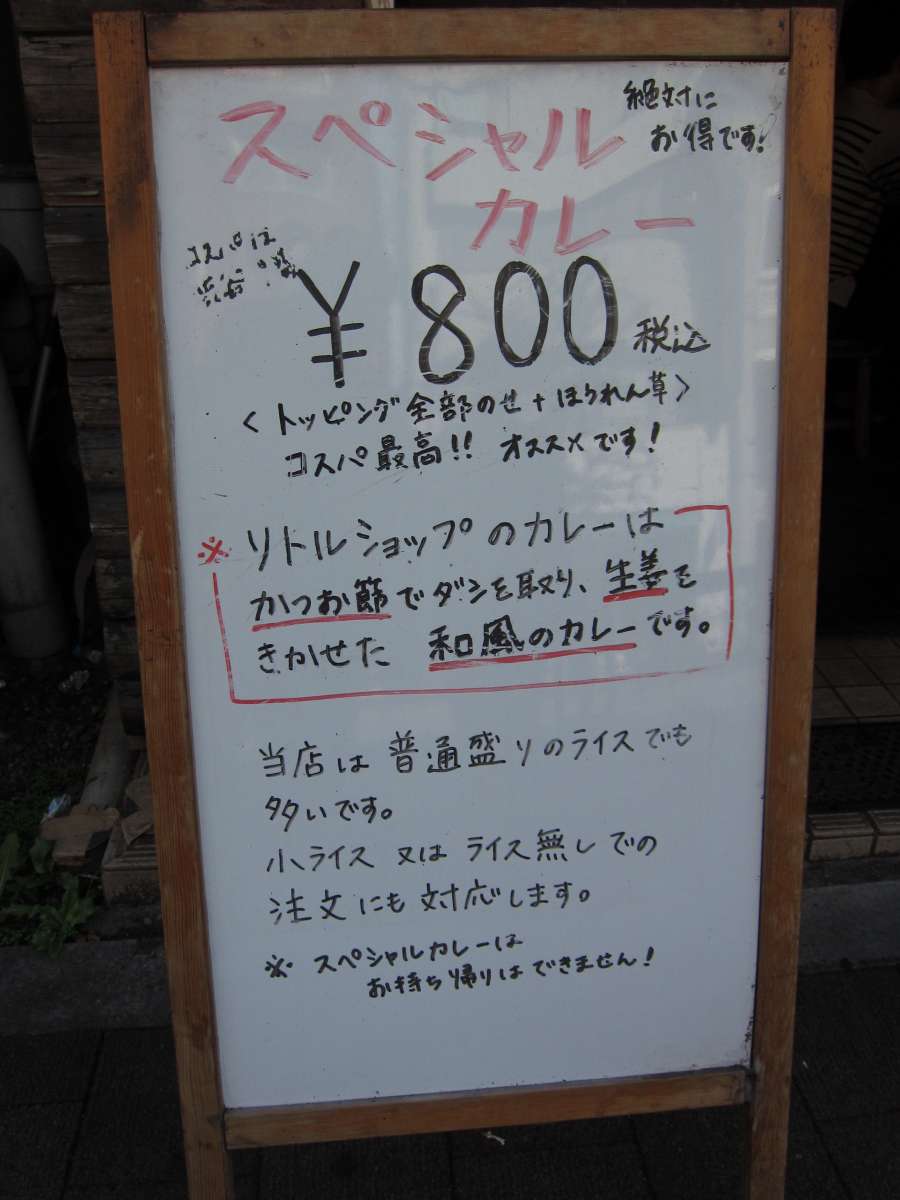 絶対に
お得です!
スペシャル
カレー
コスパは
¥800 税込
<トッピング全部のせ+ほうれん草>
コスパ最高!! オススメです!
※リトルショップのカレーは
かつお節でダシを取り、生姜を
きかせた 和風のカレーです。
当店は普通盛りのライスでも
多いです。
小ライス又はライス無しでの
注文にも対応します。
※スペシャルカレーは
お持ち帰りはできません!